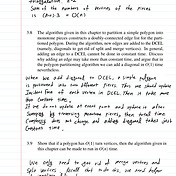 Sum of the numbers of vertices of the pieces
is (n+2) = O(n)
3.8 The algorithm given in this chapter to partition a simple polygon into
monotone pieces constructs a doubly-connected edge list for the parti-
tioned polygon. During the algorithm, new edges are added to the DCEL
(namely, diagonals to get rid of split and merge vertices). In general,
adding an edge to a DCEL cannot be done in constant time. Discuss
why adding an edge may take more than constant time, and argue that in
the polygon-partitioning algorithm we can add a diagonal in O(1) time
nevertheless.
When we add diagonal to DCEL, a simple polygon
is partitioned into two different pieces. Then we should update
Incident face of each vertex in DCEL. Then it takes more
than constant time.
If we do not update at each point and update is after
by traversing monotone pieces, then total time
complexity does not change and adding diagonal takes just
constant time.
3.9 Show that if a polygon has O(1) turn vertices, then the algorithm given in
this chapter can be made to run in O(n) time.
We only need to get rid of merge vertices and
split vertices.